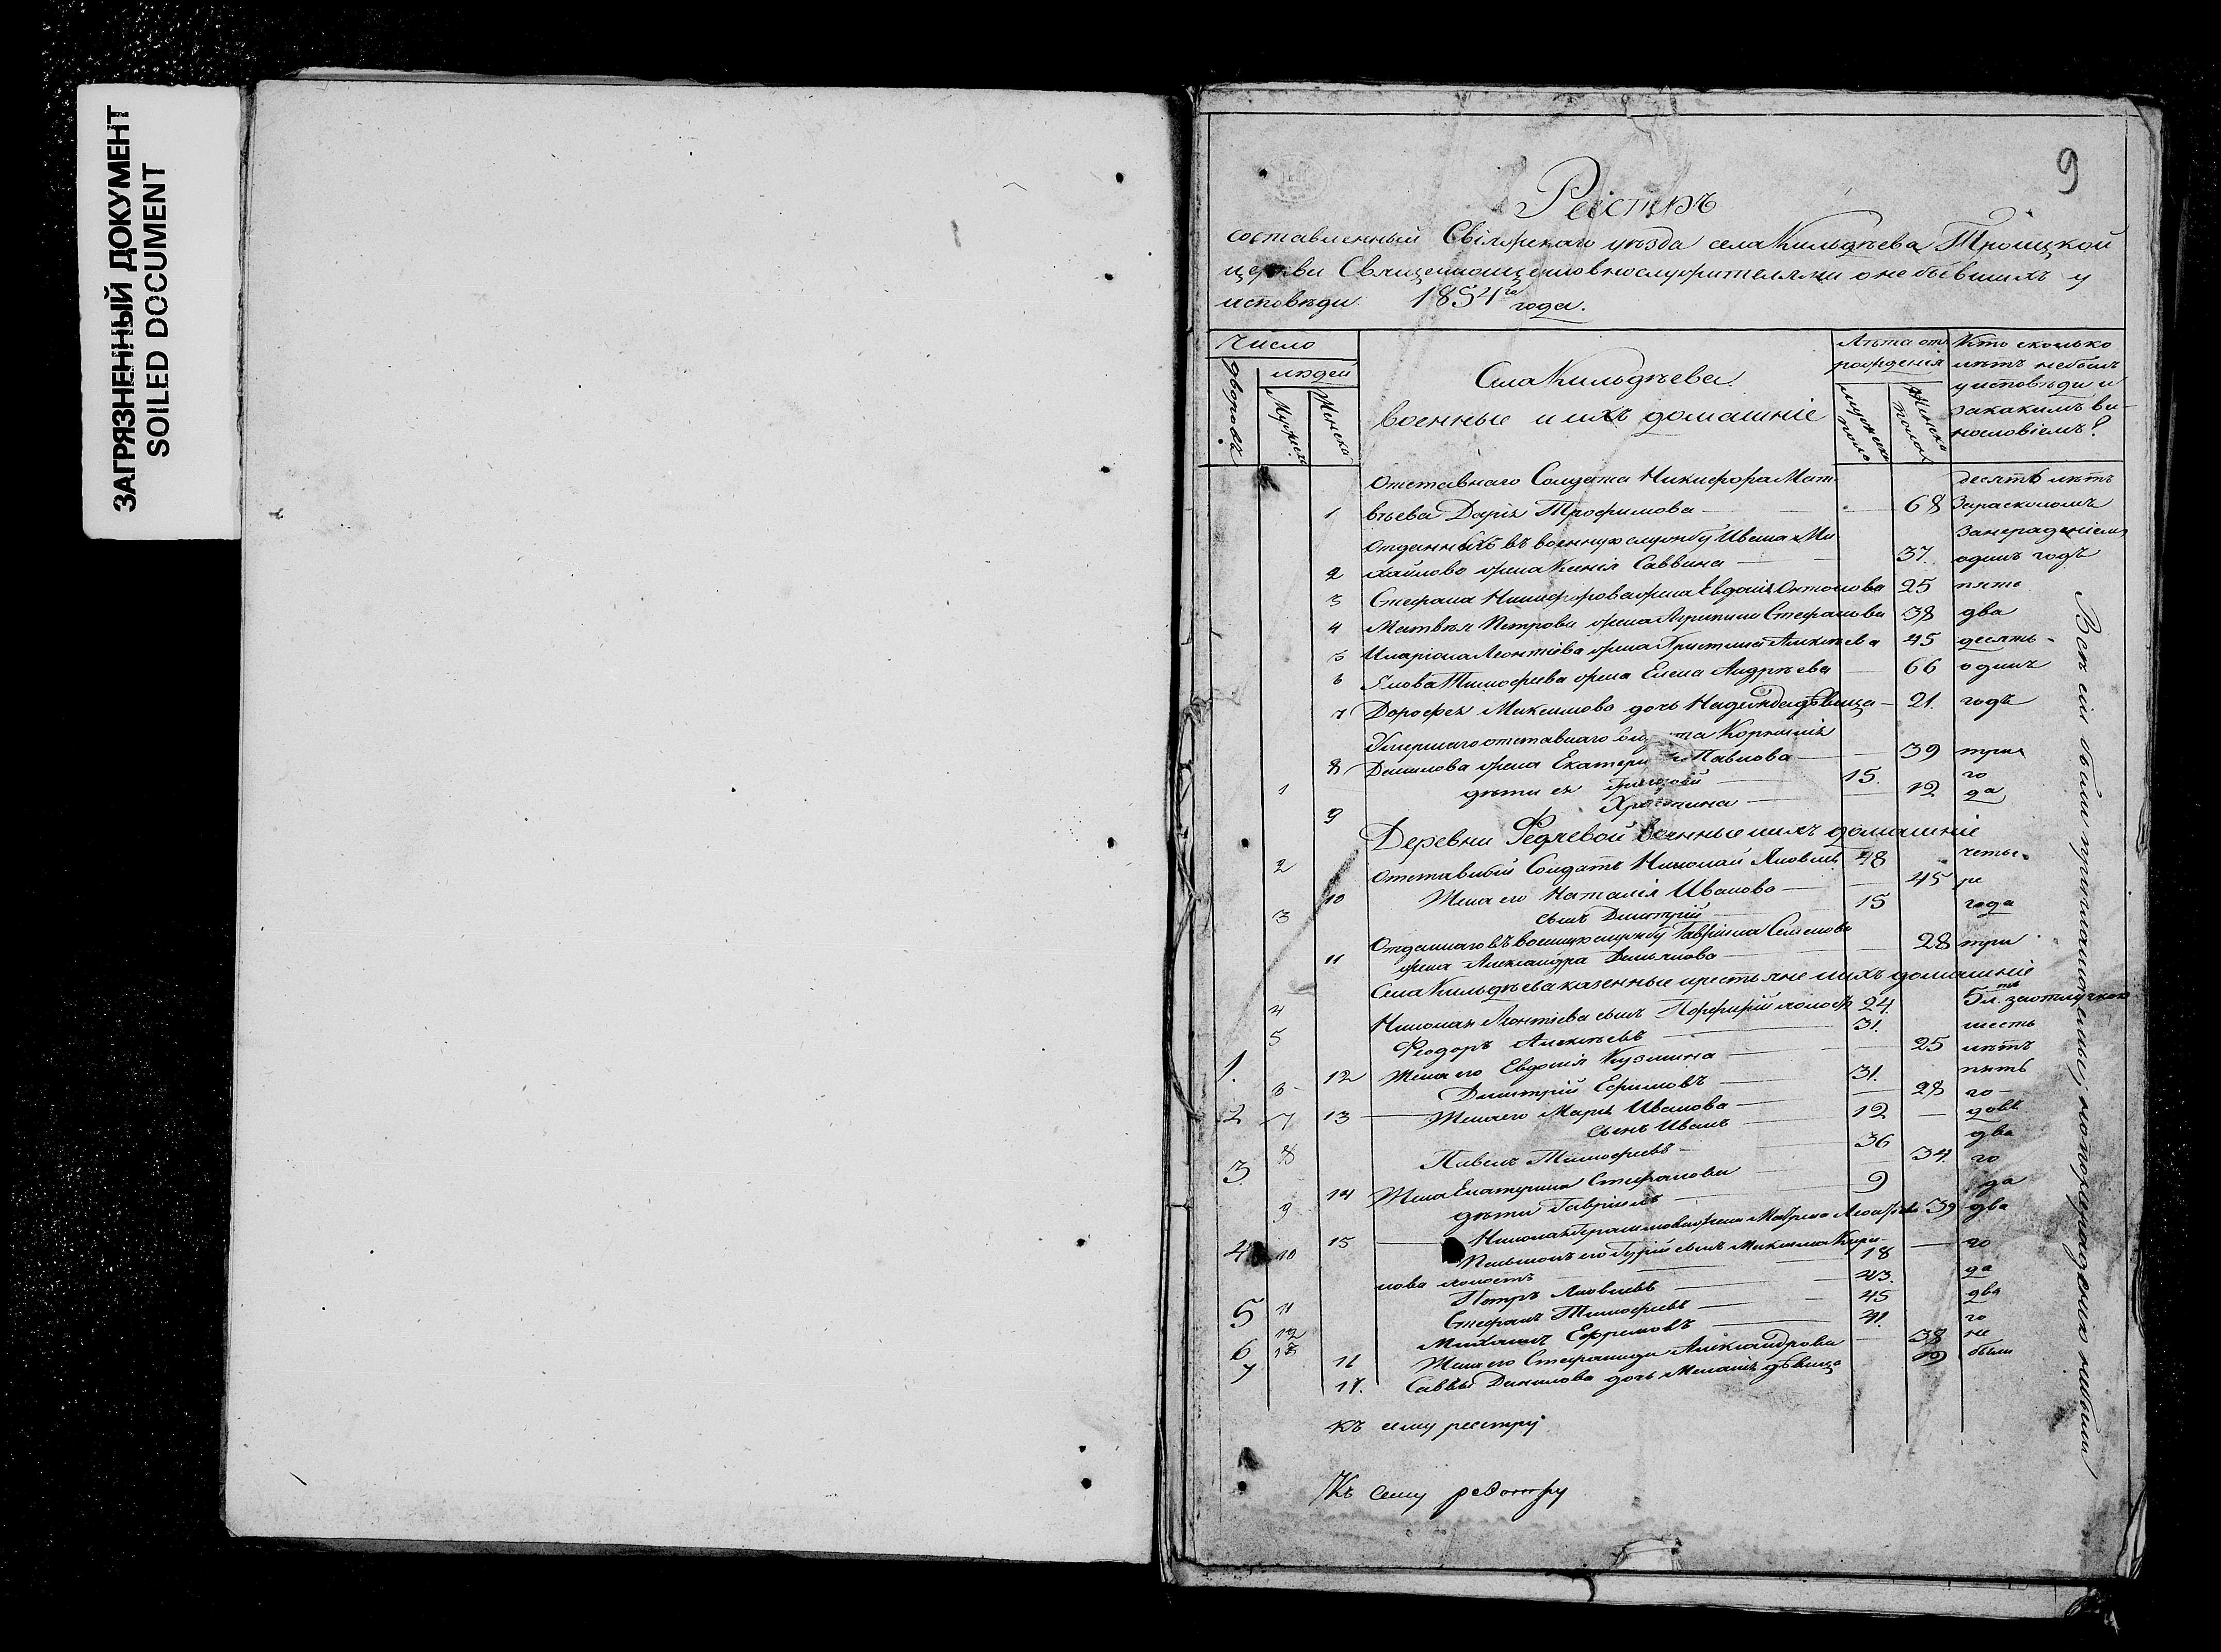 ЗАГРЯЗНЕННЫЙ ДОКУМЕНТ
SOILED DOCUMENT
9
Реестръ
составленный Свіяжскаго уѣзда села Кильдѣева Троицкой
церкви Священноцерковнослужителями о небывшихъ у
исповѣди 1854го года.
Число
дворовъ
людей
Мужеск
Женска
Села Кильдѣева
военные и ихъ домашніе
Лѣта отъ
рожденія
мужеска
полу
Женска
полу
Кто сколько
лѣтъ не былъ
у исповѣди и
за какимъ ви-
нословіемъ?
Отставнаго Солдата Никифора Мат десять лѣтъ
1 вѣева Дарія Трофимова 68 За расколомъ
Отданныхъ въ военную службу Ивана Ми За нераденіемъ
2 хайлова жена Ксенія Саввина 37. одинъ годъ
3 Стефана Никифорова жена Евдокія Антонова 25 пять
4 Матвѣя Петрова жена Агрипина Стефанова 38 два
5 Иларіона Леонтіева жена Христина Алексѣева 45 десять
6 Якова Тимофеева жена Елена Андрѣева 66 одинъ
7 Дорофея Максимова дочь Надежда дѣвица 21. годъ
Умершаго отставнаго Корнилія
8 Данилова жена Екатери Павлова 39 три
1 дѣти ея Григорій 15. го
9 Христина 12 да
Деревни военные и ихъ домашніе
2 Отставный Солдатъ Николай Яковлев 48 четы-
10 Жена его Наталія Иванова 45 ре
3 сынъ Димитрій 15 года
Отданнаго въ военную службу Гавріила Семенова
11 жена Александра Демьянова 28 три
Села Кильдѣева казенные крестьяне и ихъ домашніе
4 Николая Леонтіева сынъ Порфирій холостъ 24. 5 л. за отлучкою
1. 5 Феодоръ Алексѣевъ 31. шесть
12 Жена его Евдокія Кузмина 25 лѣтъ
2 6 Димитрій Ефимовъ 31. пять
13 Жена его Марія Иванова 28 го
7 сынъ Иванъ 12 довъ
3. 8 Павелъ Тимофеевъ 36 два
14 Жена Екатерина Стефанова 34. го
9 дѣти Гавріилъ 9 да
15 Николая Герасимова жена Матрена 39 два
4 10 его сынъ Максима Кири го
лова холостъ 18 да
5 11 Петръ Яковлевъ 43. два
6 12 Стефанъ Тимофеевъ 45 го
7 13 Михаилъ Ефремовъ 41. не
16 Жена его Стефанида Александрова 38 были
17. Саввы Данилова дочь Меланія дѣвица 19
Всѣ сіи были но по нераденію небыли
къ сему реестру
Къ сему